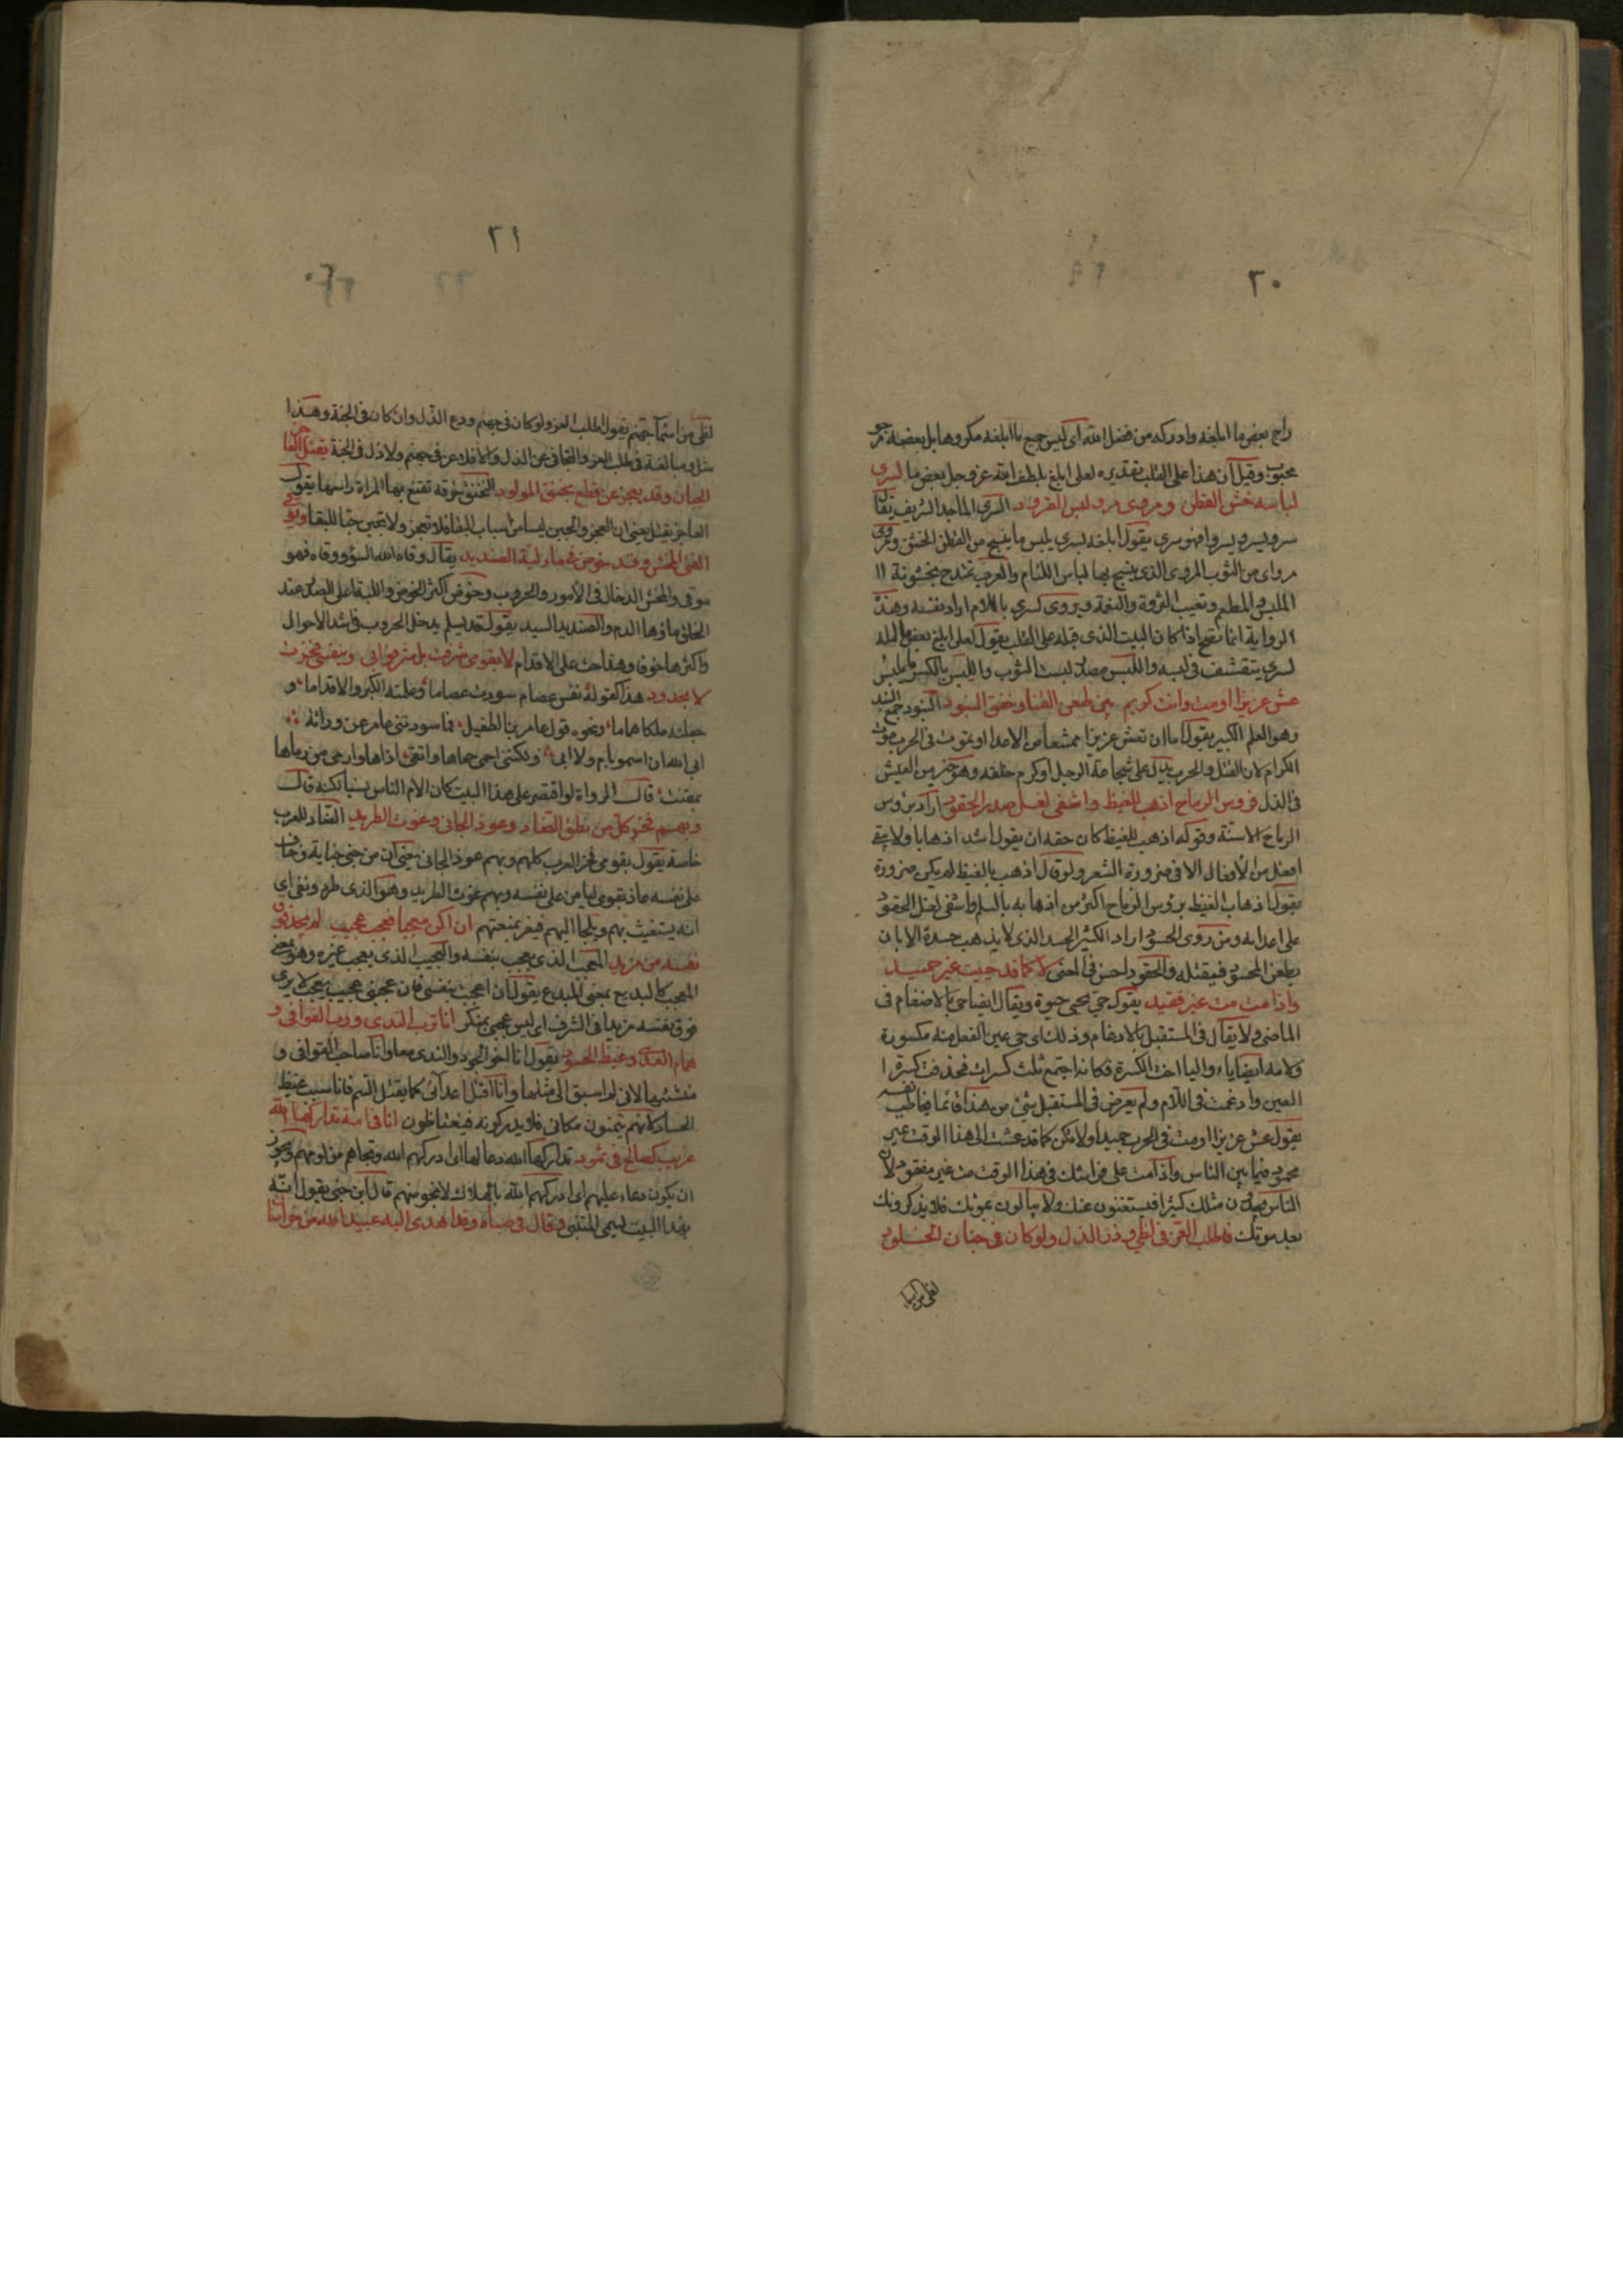 ٣٠
راج بعض ما ابلغه وادركه من فضل الله اى ليس جميع ما ابلغه مكروها بل بعضه مرجو
محبوب وقيل ان هذا على القلب بتقديره لعلى ابلغ بلطف الله عز وجل بعض ما لسرى
لباسه خشن القطن ومروى مرو لبس القرود السرى الماجد الشريف يقال
سرو يسرو سروا فهو سرى يقول ابلغه لسرى يلبس ما ينسج من القطن الخشن ومروى
مرواى من الثوب المروى الذى ينسج بها لباس اللئام والعرب تتمدح بخشونة ال
الملبس والمطعم وتعيب الترفة والنعمة ويروى كسرى باللام اراد نفسه وهذه
الرواية انما تصح اذا كان البيت الذى قبله على القلب يقول لعلى ابلغ بعض ما امله
لسرى يتقشف فى لبسه واللبس مصدر لبست الثوب واللبس بالكسر ما يلبس
عش عزيزا اومت وانت كريم بين طعن القنا وخفق البنود البنود جمع البند
وهو العلم الكبير يقول اما ان تعش عزيزا ممتنعا من الاعدا او تموت فى الحرب موت
الكرام لان القتل والحرب يدل على شجاعة الرجل وكرم خلقه وهو خير من العيش
فى الذل فروس الرماح اذهب للغيظ واشفى لغل صدر الحقود اراد بروس
الرماح الاسنة وقوله اذهب للغيظ كان حقه ان يقول اشد اذهابا ولا يبنى
افعل من الافعال الا فى ضرورة الشعر ولو قال اذهب بالغيظ لم يكن ضرورة
يقول اذهاب الغيظ بروس الرماح اكثر من اذهابه بالسلم واشفى لغل الحقود
على اعدائه ومن روى الحسود اراد الكثير الحسد الذى لا يذهب حسده الا بان
يطعن المحسود فيقتله والحقود احسن فى المعنى لا كما قد حييت غير حميد
واذا مت مت غير فقيد يقول حى يحيى حيوة ويقال ايضا حى بالادغام فى
الماضى ولا يقال فى المستقبل بالادغام وذلك اى حى عين الفعل منه مكسورة
ولامه ايضا ياء والياء اخت الكسرة فكانه اجتمع ثلث كسرات فحذفت كسرة ا
العين وادغمت فى اللام ولم يعرض فى المستقبل شئ من هذا فانما يخاطب نفسه
يقول عش عزيزا اومت فى الحرب حميدا ولا تكن كما قد عشت الى هذا الوقت غير
محمود فيما بين الناس واذا مت على فراشك فى هذا الوقت مت غير مفقود لان
الناس يجدون مثلك كثيرا فيستغنون عنك ولا يبالون بموتك فلا يذكرونك
بعد موتك فاطلب العز فى لظى وذر الذل ولو كان فى جنان الخلود
لظى من اسما
٣١
لظى من اسماء جهنم يقول اطلب العز ولو كان فى جهنم ودع الذل وان كان فى الجنة وهذا
مثل ومبالغة فى طلب العز والتجافى عن الذل والا فلا عز فى جهنم ولا ذل فى الجنة يقتل العاجز
الجبان وقد يعجز عن قطع بخنق المولود البخنق خرقة تقنع بها المراة راسها يقول
العاجز يقتل يعنى ان العجز والجبن ليسا من اسباب البقا فلا تعجز ولا تجبن حبا للبقا ويوقى
الفتى المخش وقد خوض فى ماء لبة الصنديد يقال وقاه الله السوء ووقاه فهو
موقى والمخش الدخال فى الامور والحروب وخوض اكثر الخوض واللبة اعلى الصدر عند
الحلق ماؤها الدم والصنديد السيد يقول قد يسلم من يدخل الحروب فى اشد الاحوال
واكثرها خوفا وهذا حث على الاقدام لا بقومى شرفت بل شرفوا بى وبنفسى فخرت
لا بجدودى هذا كقوله نفس عصام سودت عصاما وعلمته الكر والاقداما و
جعلته ملكا هماما ونحوه قول عامر بن الطفيل فما سودتنى عامر عن وراثة
ابى الله ان اسمو بام ولا اب ولكننى احمى حماها واتقى اذاها وارمى من رماها
بمقنب قال الرواة لو اقتصر على هذا البيت كان الام الناس نسبا لكنه قال
وبهم فخر كل من نطق الضاد وعوذ الجانى وغوث الطريد الضاد للعرب
خاصة يقول بقومى فخر العرب كلهم وبهم عوذ الجانى يعنى ان من جنى جناية وخاف
على نفسه عاذ بقومى ليامن على نفسه وبهم غوث الطريد وهو الذى طرد ونفى اى
انه يستغيث بهم ويلجا اليهم فيعز بمنعتهم ان اكن معجبا فعجب عجيب لم يجد فوق
نفسه من مزيد المعجب الذى يعجب بنفسه والعجيب الذى يعجب غيره وهو بمعنى
المعجب كالبديع بمعنى المبدع يقول ان اعجبت بنفسى فان عجبى عجيب عجيب لا يرى
فوق نفسه مزيدا فى الشرف اى ليس عجبى بمنكر انا ترب الندى ورب القوافى و
سمام العدى وغيظ الحسود يقول انا اخو الجود والندى معا وانا صاحب القوافى و
منشئها لانى لم اسبق الى مثلها وانا اقتل اعدائى كما يقتل السم فانا سبب غيظ
الحساد كانهم يتمنون مكانى فلا يدركونه فيغتاظون انا فى امة تداركها الله
غريب كصالح فى ثمود تداركها الله دعا لها اى ادركهم الله ونجاهم من لومهم ويجوز
ان يكون دعاء عليهم اى ادركهم الله بالهلاك لانجو منهم قال ابن جنى يقول انه
بهذا البيت سمى المتنبى وقال فى صباه وقد اهدى اليه عبيد الله من خراسان